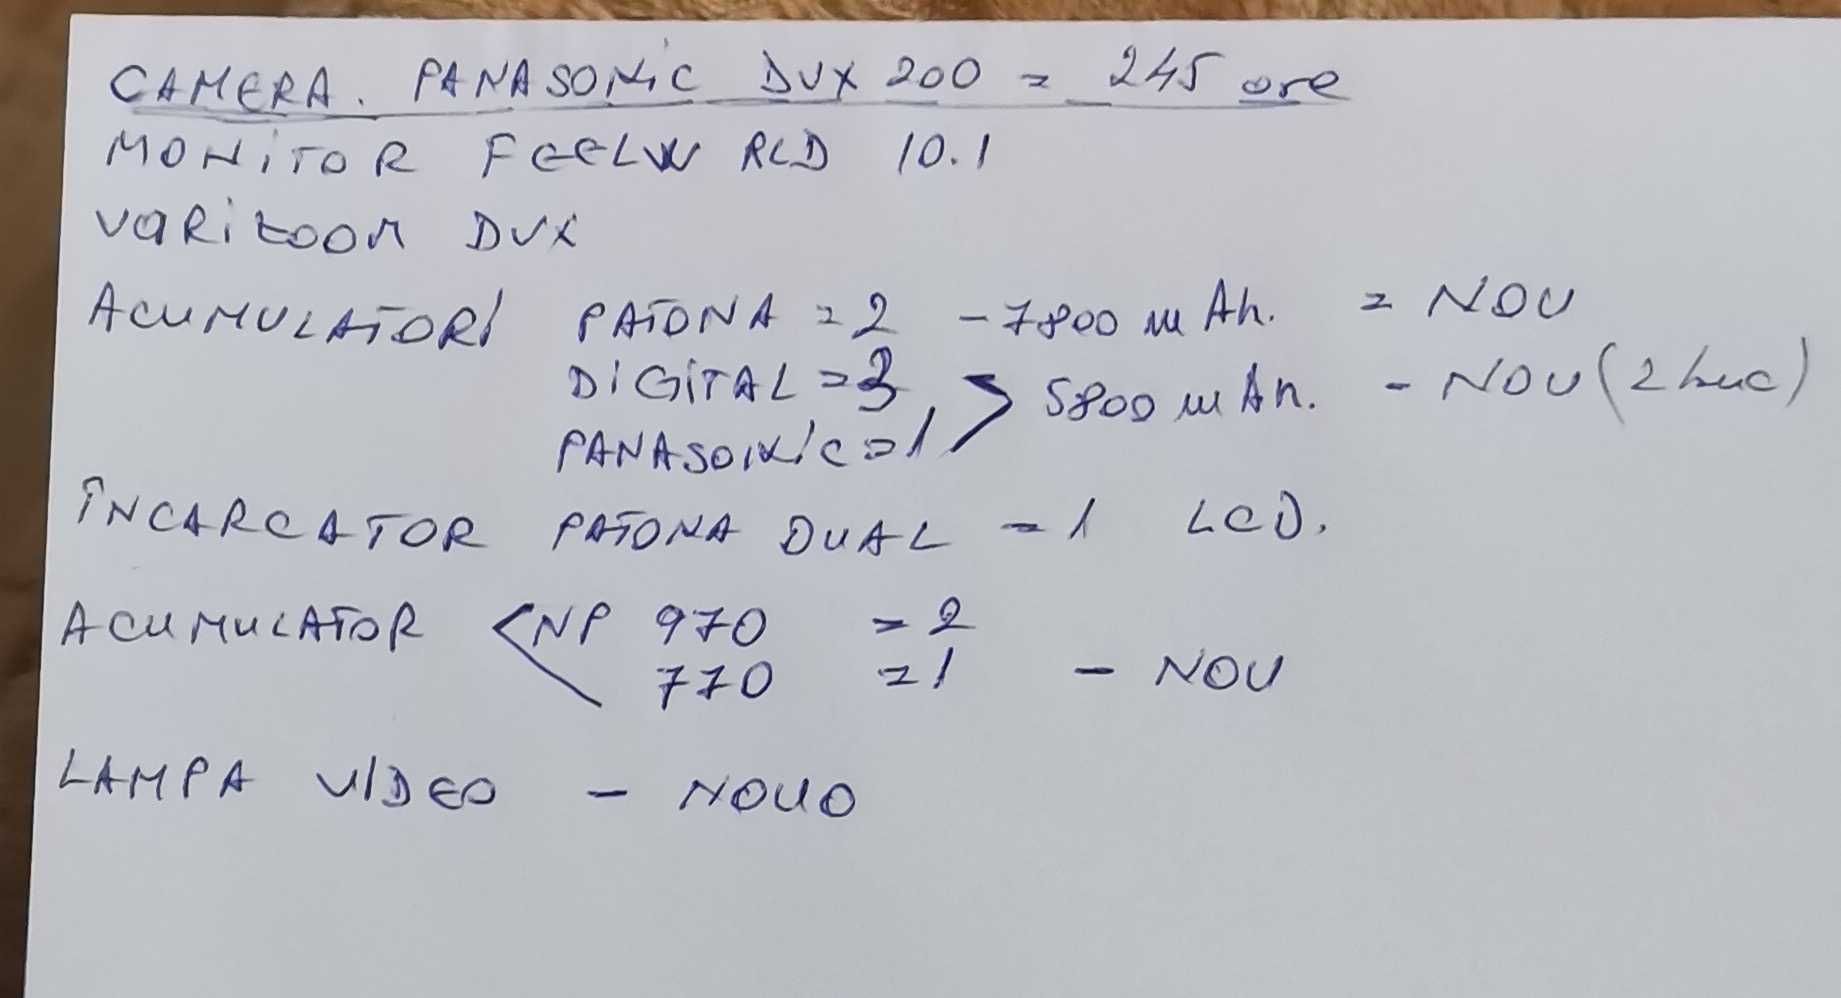 CAMERA. PANASONIC DVX 200 = 245 ore
MONITOR FEELW RLD 10.1
VARIZOOM DVX
ACUMULATORI PATONA = 2 - 7800 mAh. = NOU
DIGITAL = 3 > 5800 mAh. - NOU (2 buc)
PANASONIC = 1
ÎNCARCATOR PATONA DUAL = 1 LCD.
ACUMULATOR < NP 970 = 2
770 = 1 - NOU
LAMPA VIDEO - NOUO